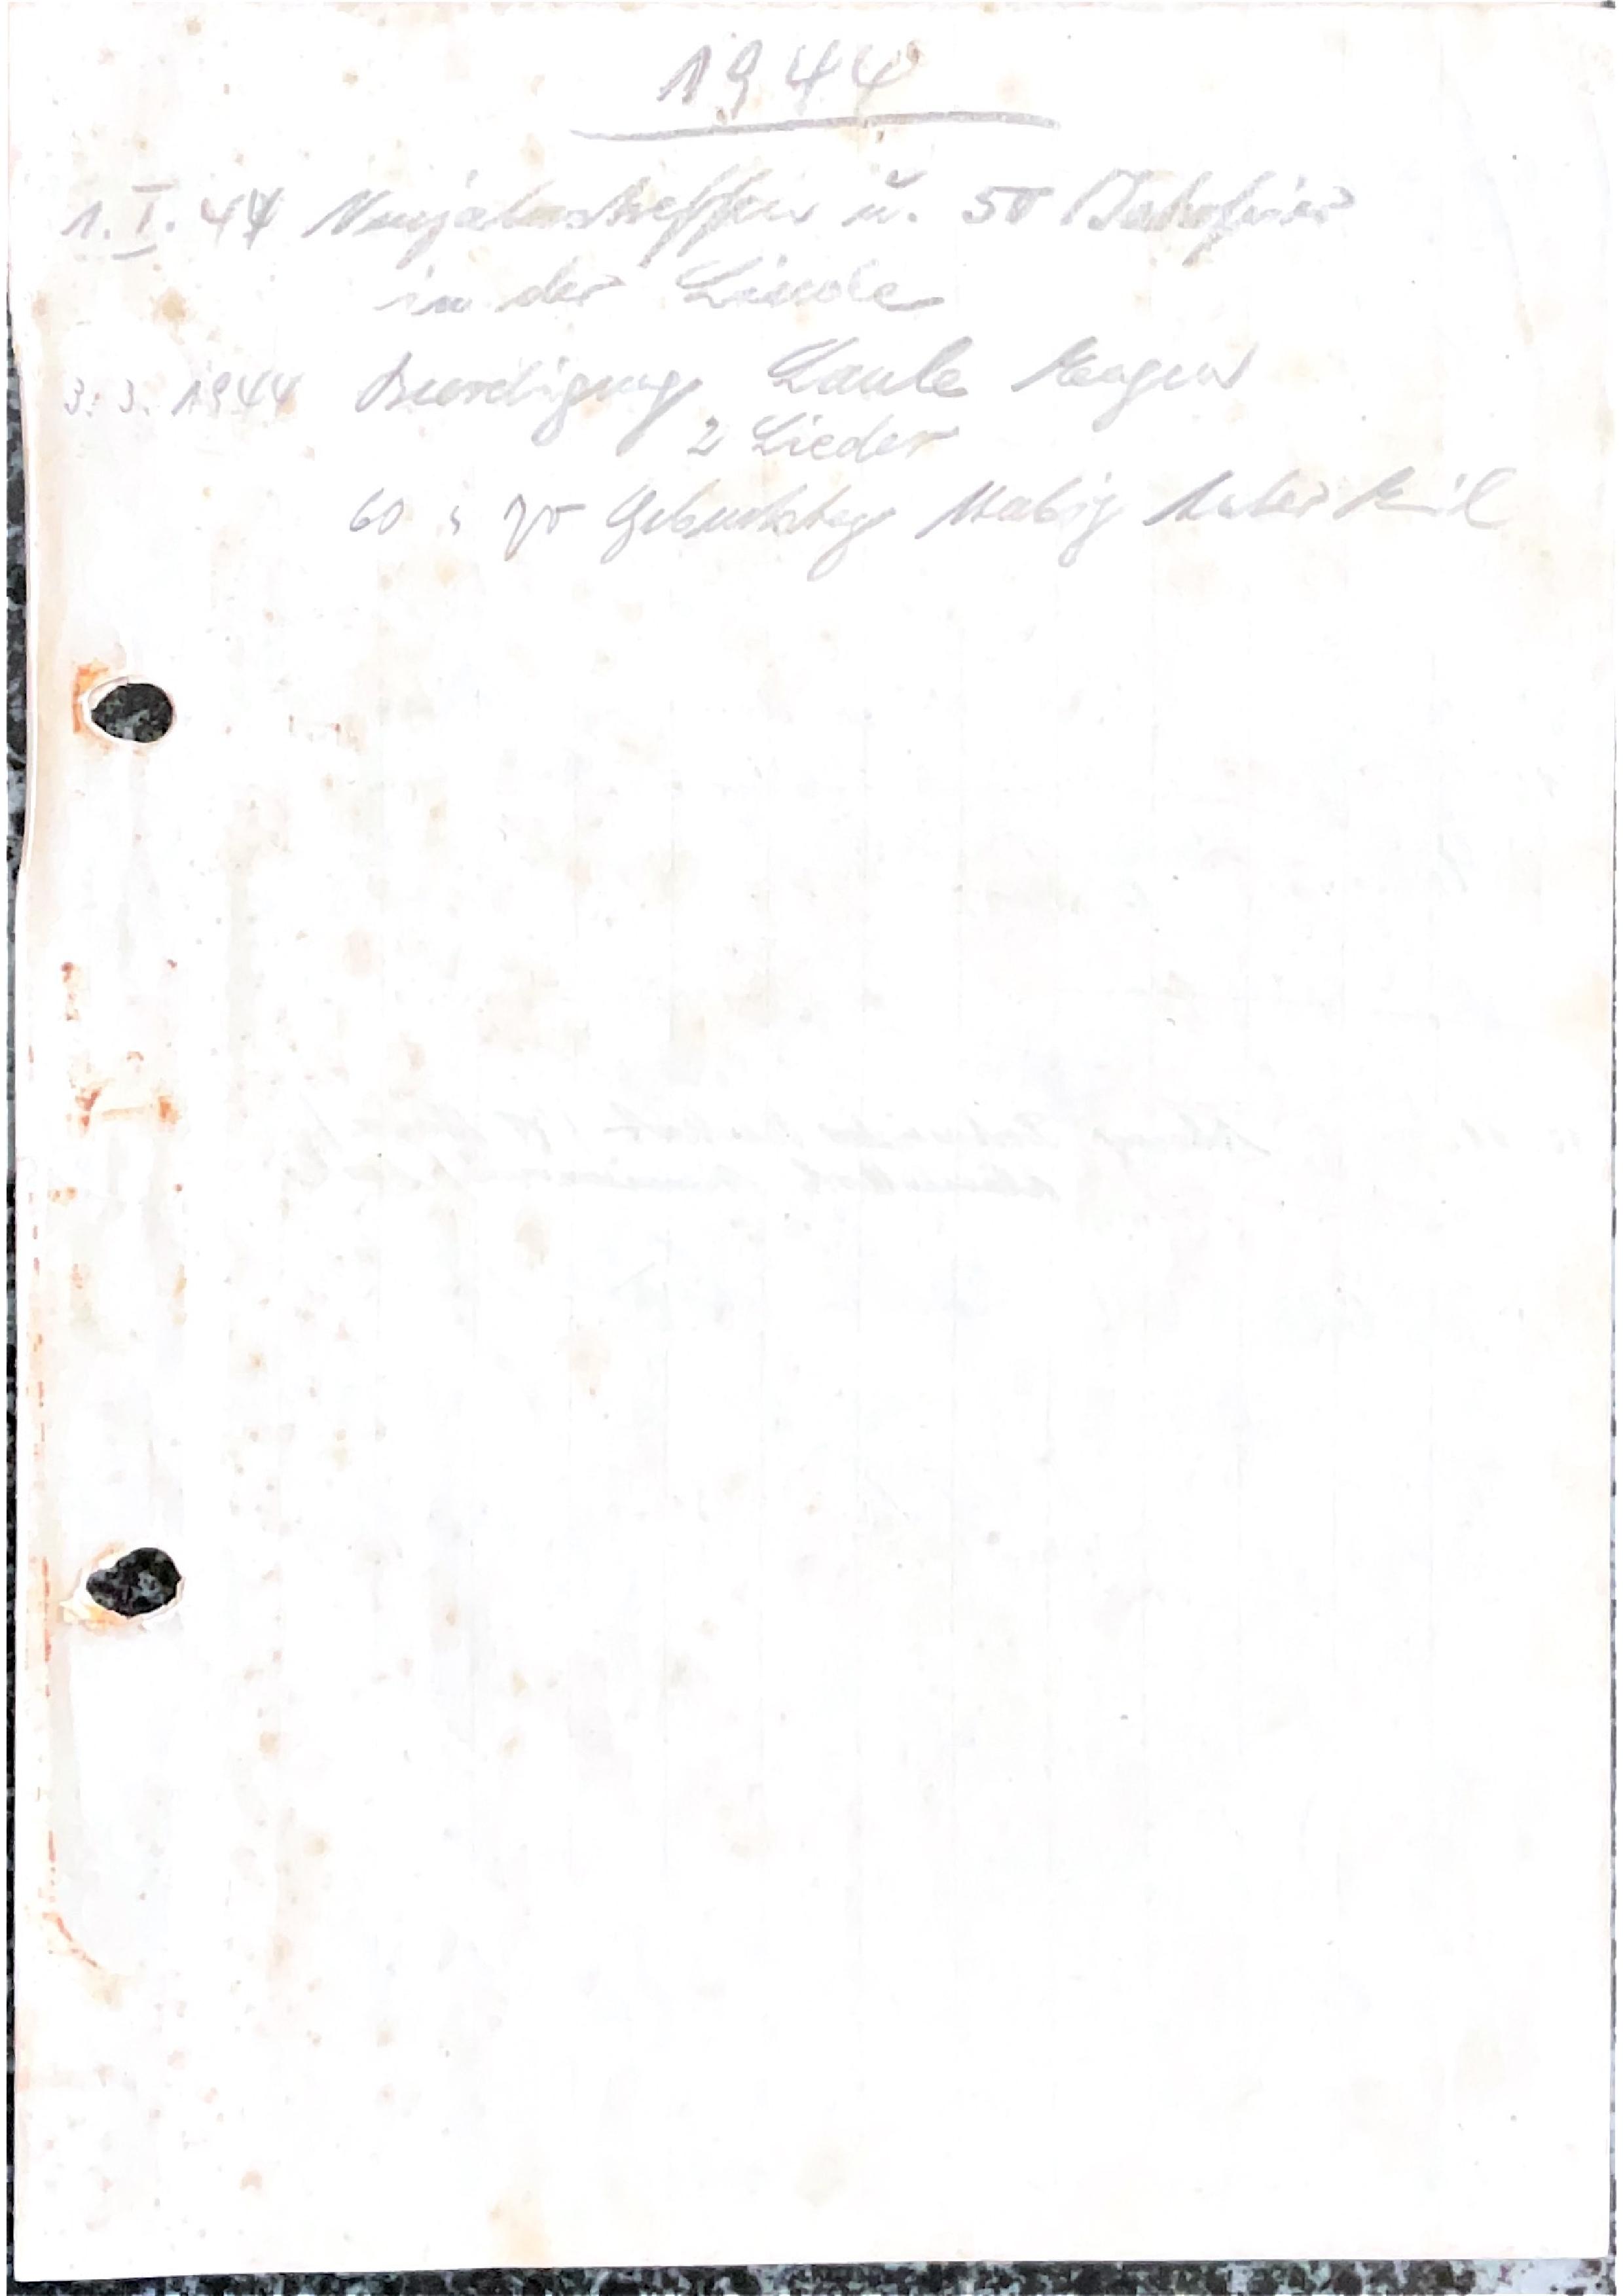 1944
1. I. 44 Neujahrstreffen u. 50 Jahrfeier
in der Linde
3. 3. 1944 Beerdigung Laule Eugen
2 Lieder
60 70 Geburtstag